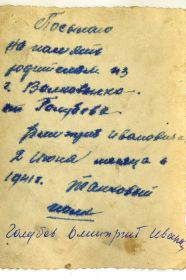 Посылаю
на память
родителям из
г. Волковыска
от Голубева
Дмитрия Ивановича
2 июня месяца в
1941г. Танковый
полк
Голубев Дмитрий Иванов